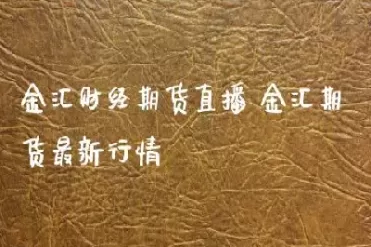 金汇财经期货直播 金汇期
货最新行情